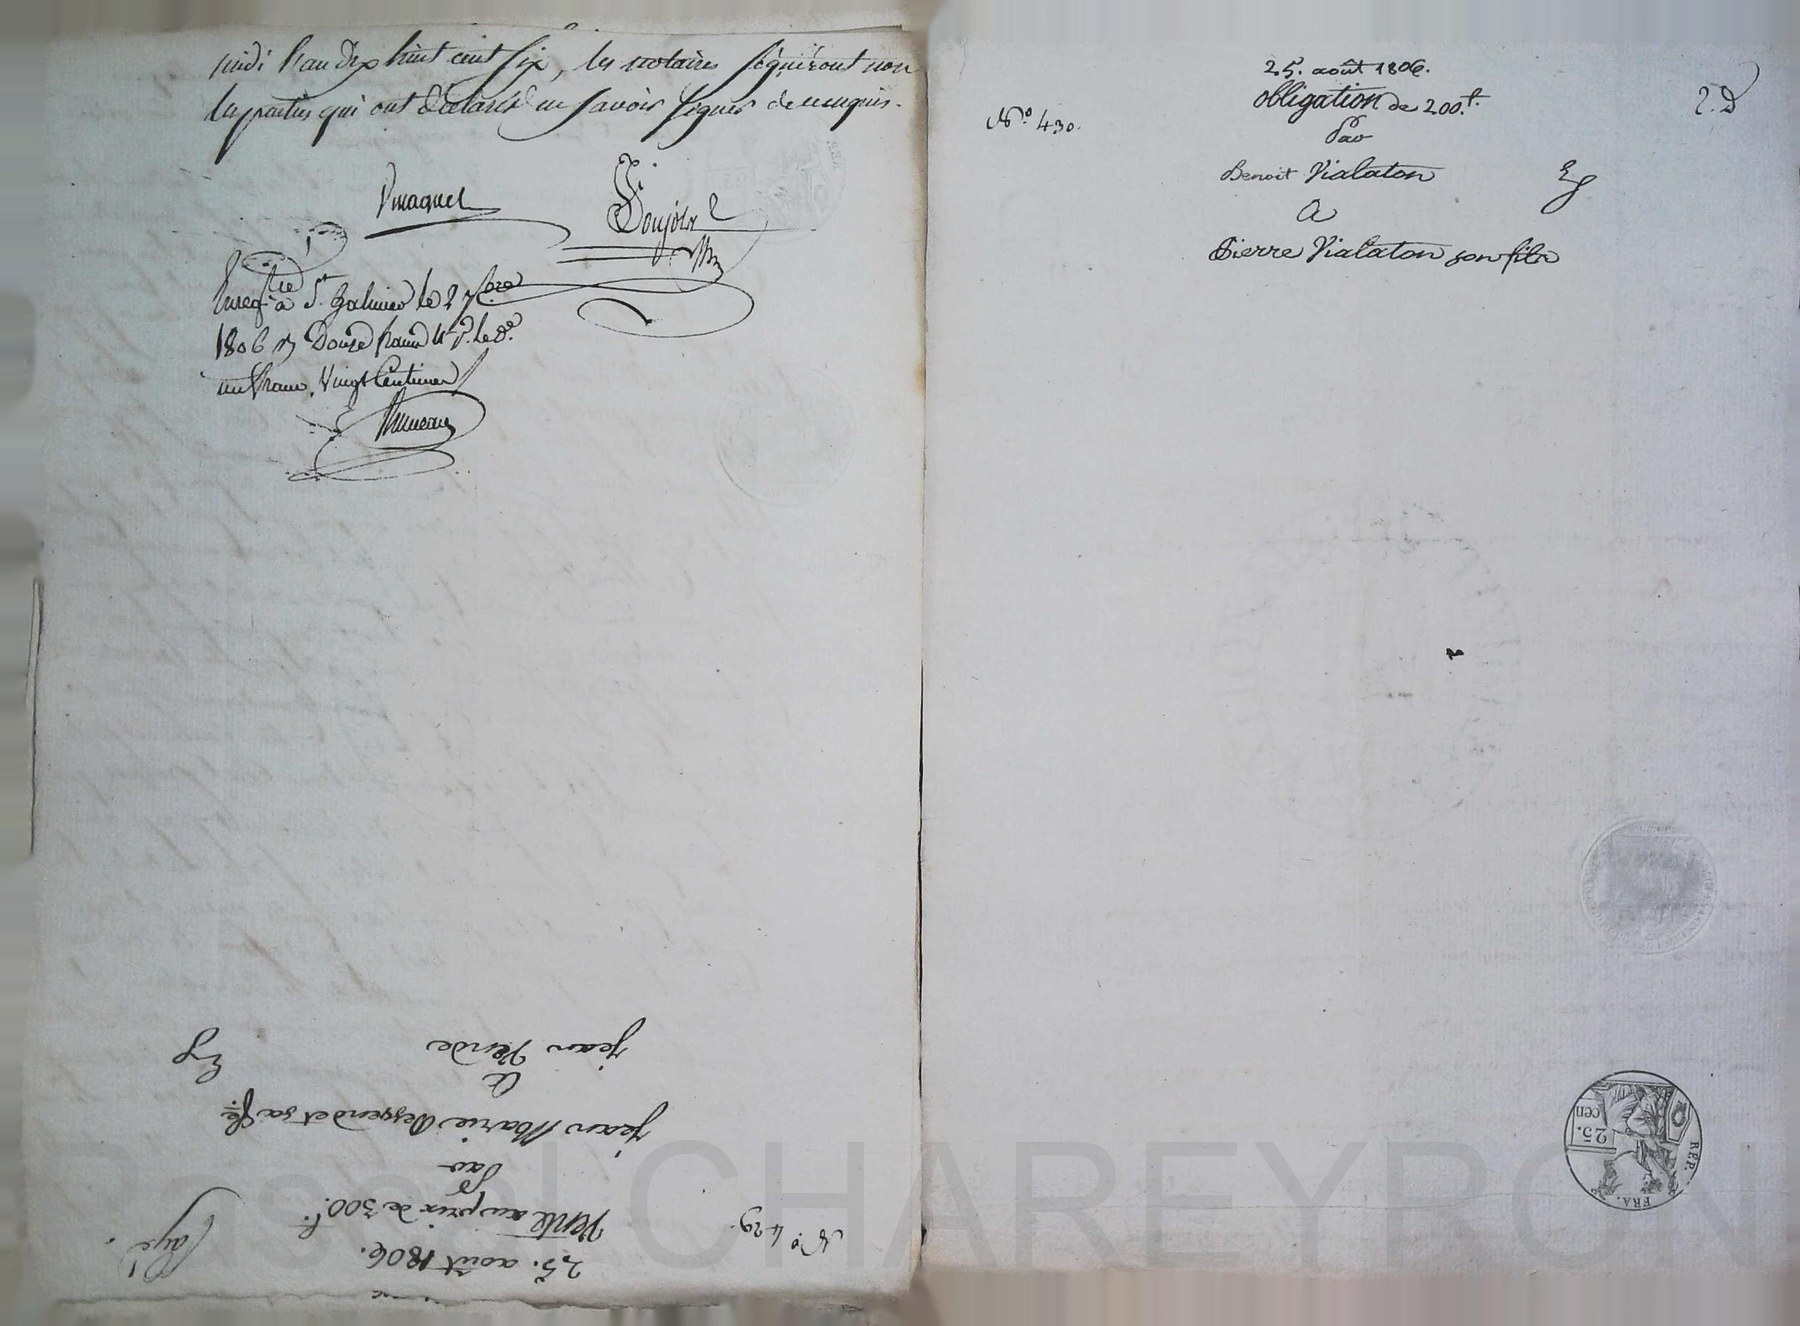 midi l'an dix huit cent six, les notaires signeront non
les parties qui ont déclaré ne savoir signer de ce enquis.
Enreg.tré à St. Galmier le 2 7bre
1806 Douze francs le d.e
un franc Vingt Centimes
jean Verde
a
Eg
jean Marie Deszendet sa fe.
Par
Vente au prix de 300.f
25. août 1806.
Payé.
N.o 429.
25. août 1806.
N.o 430.
obligation de 200.f.
2. D
Par
Benoit Vialaton
Eg
A
Pierre Vialaton son fils
25.
cen
REP.
FRA.
Pascal CHAREYRON